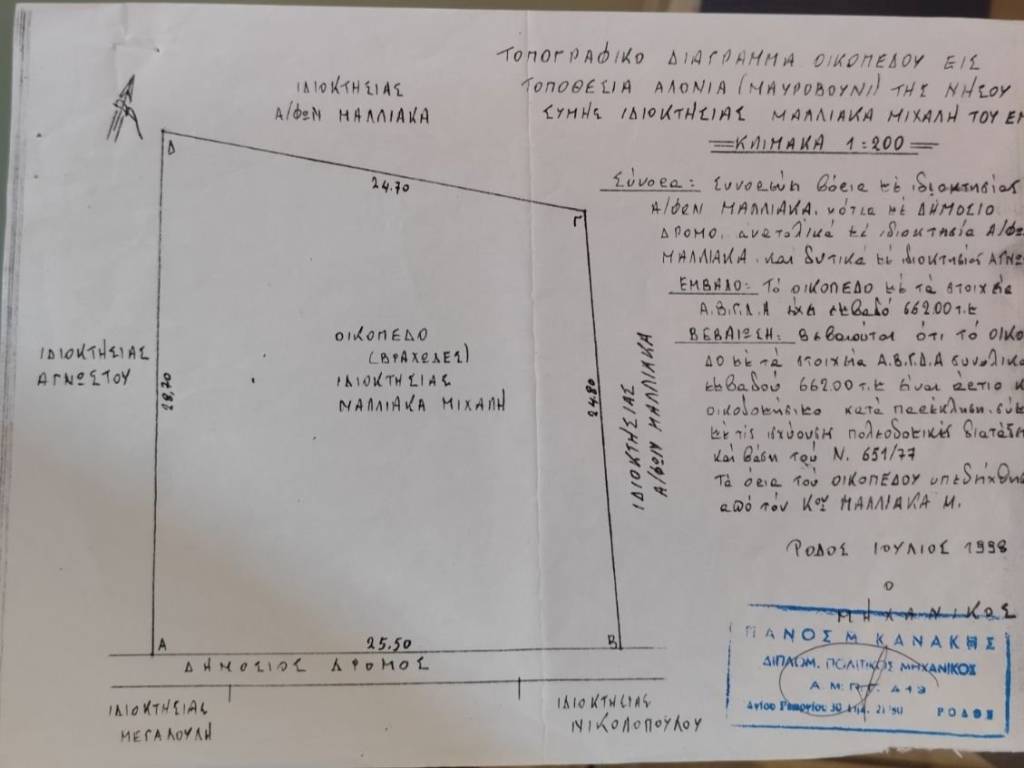 ΤΟΠΟΓΡΑΦΙΚΟ ΔΙΑΓΡΑΜΜΑ ΟΙΚΟΠΕΔΟΥ ΕΙΣ
ΤΟΠΟΘΕΣΙΑ ΑΛΟΝΙΑ (ΜΑΥΡΟΒΟΥΝΙ) ΤΗΣ ΝΗΣΟΥ
ΣΥΜΗΣ ΙΔΙΟΚΤΗΣΙΑΣ ΜΑΛΛΙΑΚΑ ΜΙΧΑΛΗ ΤΟΥ ΕΜ
ΚΛΙΜΑΚΑ 1:200
Σύνορα: Συνορεύη βόρια με ιδιοκτησίας
Α/ΦΩΝ ΜΑΛΛΙΑΚΑ, νότια με ΔΗΜΟΣΙΟ
ΔΡΟΜΟ, ανατολικά με ιδιοκτησία Α/ΦΩ
ΜΑΛΛΙΑΚΑ και δυτικά με ιδιοκτησίας ΑΓΝΩΣ
ΕΜΒΑΔΟ: Τό ΟΙΚΟΠΕΔΟ με τά στοιχεία
Α.Β.Γ.Δ.Α έχει εμβαδό 662.00 τ.μ
ΒΕΒΑΙΩΣΗ: Βεβαιούται ότι τό ΟΙΚΟ
ΔΟ με τά στοιχεία Α.Β.Γ.Δ.Α συνολικο
εμβαδού 662.00 τ.μ είναι άρτιο κ
οικοδομήσιμο κατά παρέκκληση σύμ
με τίς ισχύουσες πολεοδομικές διατάξ
και βάση τού Ν. 651/77
Τά όρια τού ΟΙΚΟΠΕΔΟΥ υπεδήχθησ
από τόν Κου ΜΑΛΛΙΑΚΑ Μ.
ΡΟΔΟΣ ΙΟΥΛΙΟΣ 1998
Ο
ΜΗΧΑΝΙΚΟΣ
ΠΑΝΟΣ Μ ΚΑΝΑΚΗΣ
ΔΙΠΛΩΜ. ΠΟΛΙΤΙΚΟΣ ΜΗΧΑΝΙΚΟΣ
Αγίου Γεωργίου 30
ΡΟΔΟΣ
ΙΔΙΟΚΤΗΣΙΑΣ
Α/ΦΩΝ ΜΑΛΛΙΑΚΑ
Δ
24.70
Γ
ΙΔΙΟΚΤΗΣΙΑΣ
ΑΓΝΩΣΤΟΥ
28,70
ΟΙΚΟΠΕΔΟ
(ΒΡΑΧΩΔΕΣ)
ΙΔΙΟΚΤΗΣΙΑΣ
ΜΑΛΛΙΑΚΑ ΜΙΧΑΛΗ
24.80
ΙΔΙΟΚΤΗΣΙΑΣ
Α/ΦΩΝ ΜΑΛΛΙΑΚΑ
Α
25.50
Β
ΔΗΜΟΣΙΟΣ ΔΡΟΜΟΣ
ΙΔΙΟΚΤΗΣΙΑΣ
ΜΕΓΑΛΟΥΔΗ
ΙΔΙΟΚΤΗΣΙΑΣ
ΝΙΚΟΛΟΠΟΥΛΟΥ